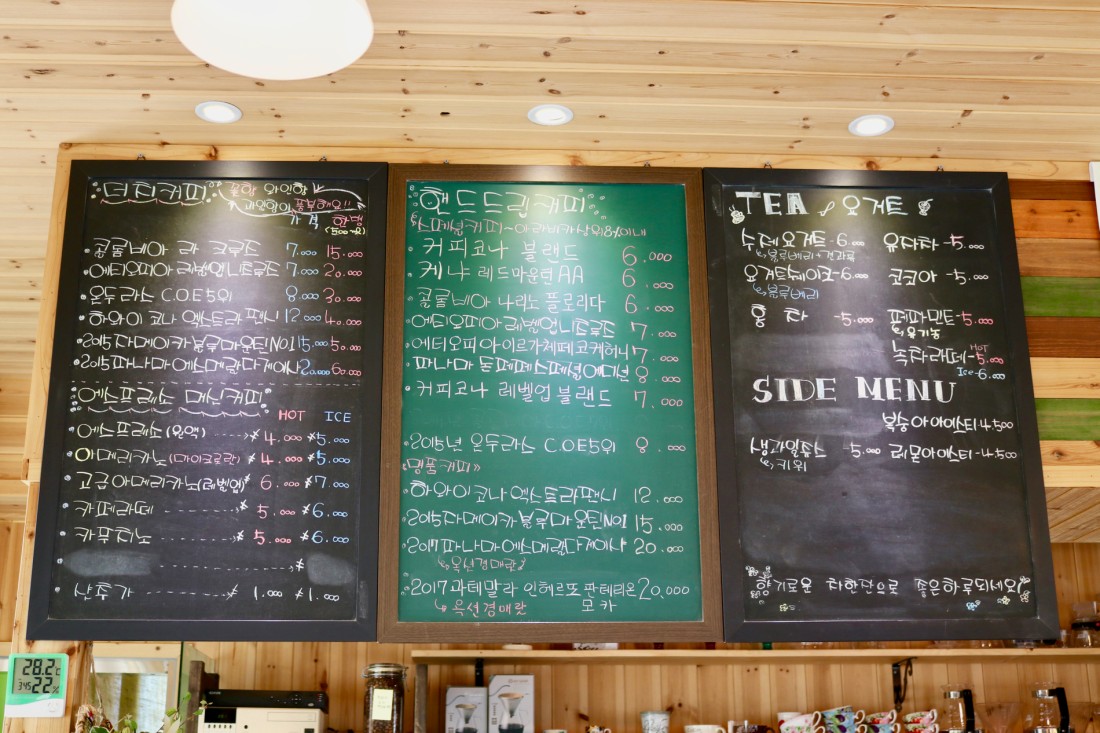 더치커피
가격 한병
(500ml)
콜롬비아 라 크루즈 7.000 15.000
에티오피아 레벨업 니트로즈 7.000 20.000
온두라스 C.O.E 5위 8.000 30.000
하와이 코나 엑스트라 팬시 12.000 40.000
2015 자메이카 블루마운틴 NO1 15.000 50.000
2015 파나마 에스메랄다 게이샤 20.000 60.000
에스프레소 메뉴커피
HOT ICE
에스프레소(원액) ₩4.000 ₩5.000
아메리카노(마이크로랏) ₩4.000 ₩5.000
고급아메리카노(레벨업) ₩6.000 ₩7.000
카페라떼 ₩5.000 ₩6.000
카푸치노 ₩5.000 ₩6.000
₩
샷추가 ₩1.000 ₩1.000
핸드드립커피
스페셜커피~아라비카상위8%이내
커피코나 블랜드 6.000
케냐 레드마운틴 AA 6.000
콜롬비아 나리노 플로리다 6.000
에티오피아 레벨업 니트로즈 7.000
에티오피아 이르가체페 코케허니 7.000
파나마 돈페페 스페셜에디션 8.000
커피코나 레벨업 블랜드 7.000
2015년 온두라스 C.O.E 5위 8.000
명품커피
하와이 코나 엑스트라팬시 12.000
2015 자메이카 블루마운틴 NO1 15.000
2017 파나마 에스메랄다게이샤 20.000
옥션경매랏
2017 과테말라 인헤르또 판테리온 20,000
옥션경매랏 모카
TEA 요거트
수제요거트 - 6.000 유자차 - 5.000
블루베리 + 견과류
요거트쉐이크 - 6.000 코코아 - 5.000
블루베리
홍차 - 5.000 페퍼민트 - 5.000
유기농
녹차라떼 - HOT 5.000
Ice - 6.000
SIDE MENU
복숭아 아이스티 4.500
생과일쥬스 - 5.000 레몬아이스티 - 4.500
키위
향기로운 차한잔으로 좋은하루되세요!
28.2℃
22%